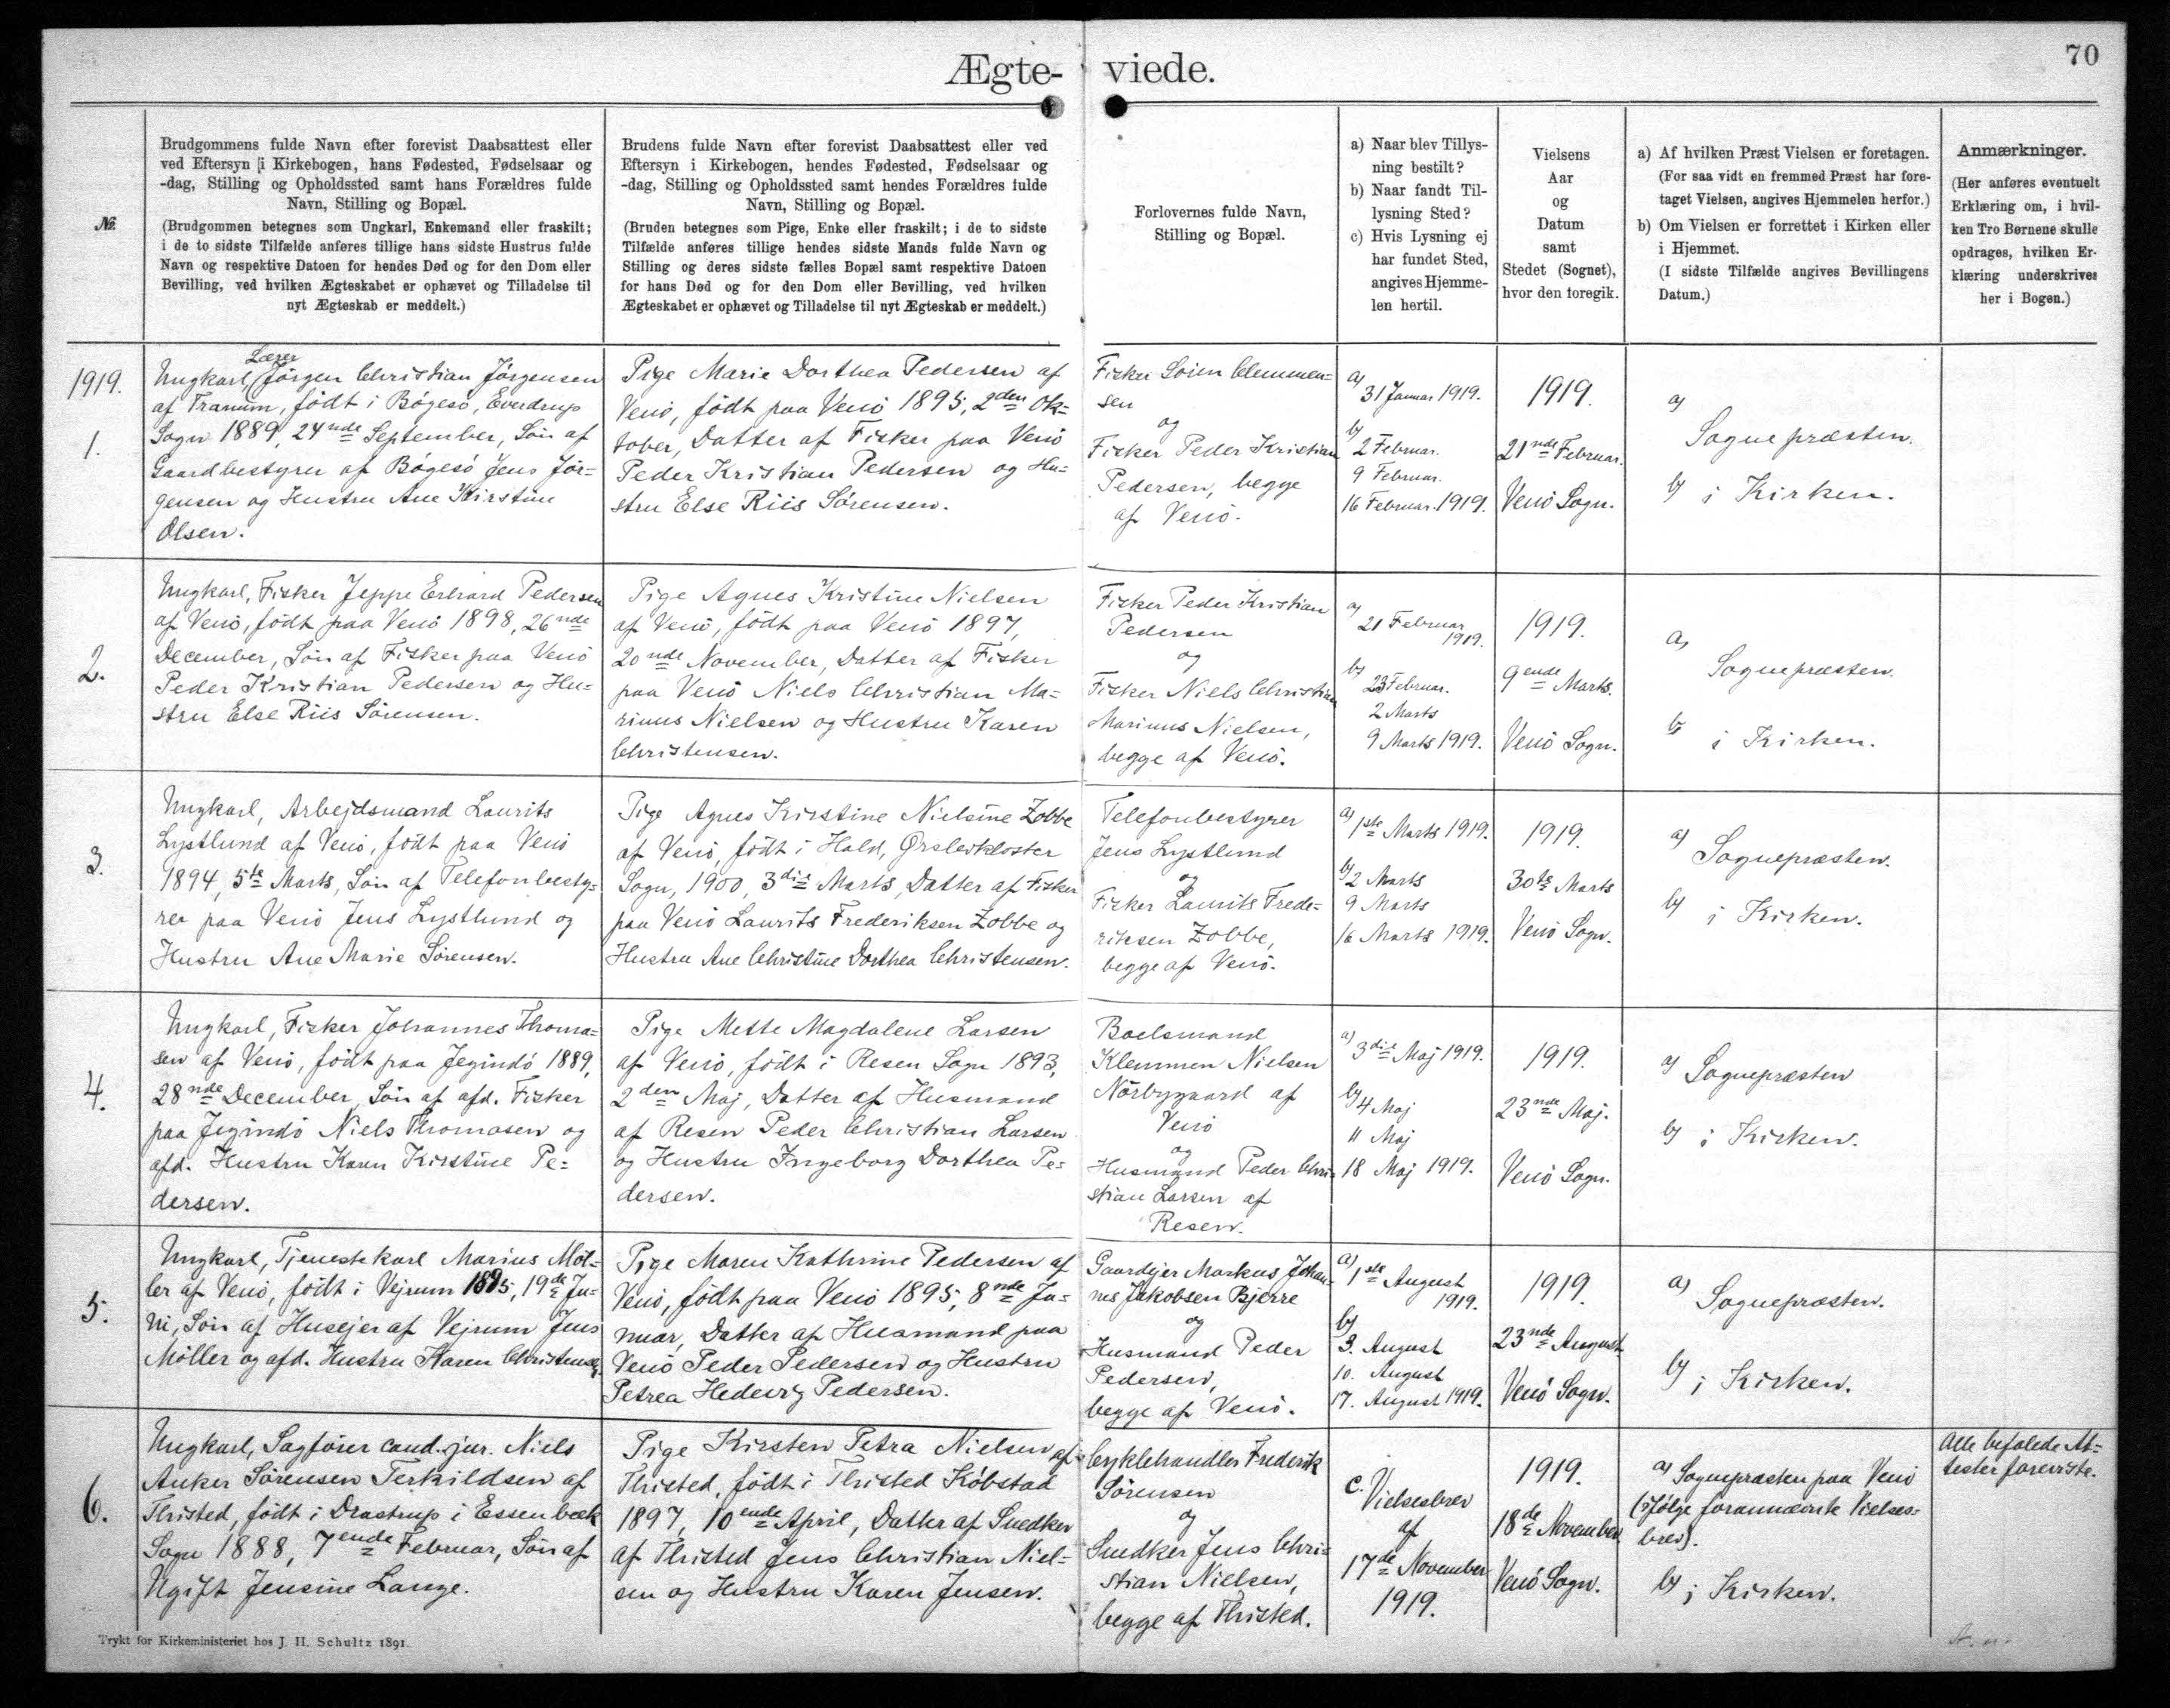 Ægte- viede.
70
№
Brudgommens fulde Navn efter forevist Daabsattest eller
ved Eftersyn i Kirkebogen, hans Fødested, Fødselsaar og
-dag, Stilling og Opholdssted samt hans Forældres fulde
Navn, Stilling og Bopæl.
(Brudgommen betegnes som Ungkarl, Enkemand eller fraskilt;
i de to sidste Tilfælde anføres tillige hans sidste Hustrus fulde
Navn og respektive Datoen for hendes Død og for den Dom eller
Bevilling, ved hvilken Ægteskabet er ophævet og Tilladelse til
nyt Ægteskab er meddelt.)
Brudens fulde Navn efter forevist Daabsattest eller ved
Eftersyn i Kirkebogen, hendes Fødested, Fødselsaar og
-dag, Stilling og Opholdssted samt hendes Forældres fulde
Navn, Stilling og Bopæl.
(Bruden betegnes som Pige, Enke eller fraskilt; i de to sidste
Tilfælde anføres tillige hendes sidste Mands fulde Navn og
Stilling og deres sidste fælles Bopæl samt respektive Datoen
for hans Død og for den Dom eller Bevilling, ved hvilken
Ægteskabet er ophævet og Tilladelse til nyt Ægteskab er meddelt.)
Forlovernes fulde Navn,
Stilling og Bopæl.
a) Naar blev Tillys-
ning bestilt?
b) Naar fandt Til-
lysning Sted?
c) Hvis Lysning ej
har fundet Sted,
angives Hjemme-
len hertil.
Vielsens
Aar
og
Datum
samt
Stedet (Sognet),
hvor den foregik.
a) Af hvilken Præst Vielsen er foretagen.
(For saa vidt en fremmed Præst har fore-
taget Vielsen, angives Hjemmelen herfor.)
b) Om Vielsen er forrettet i Kirken eller
i Hjemmet.
(I sidste Tilfælde angives Bevillingens
Datum.)
Anmærkninger.
(Her anføres eventuelt
Erklæring om, i hvil-
ken Tro Børnene skulle
opdrages, hvilken Er-
klæring underskrives
her i Bogen.)
1919.
1.
Lærer
Ungkarl, Jörgen Christian Jörgensen
af Tranum, födt i Bögesö, Everdrup
Sogn 1889, 24nde September, Sön af
Gaardbestyrer af Bögesö Jens Jör=
gensen og Hustru Ane Kirstine
Olsen.
Pige Marie Dorthea Pedersen af
Venö, födt paa Venö 1895, 2den Ok=
tober, Datter af Fisker paa Venö
Peder Kristian Pedersen og Hu=
stru Else Riis Sörensen.
Fisker Sören Clemmen=
sen
og
Fisker Peder Kristian
Pedersen, begge
af Venö.
a)
31 Januar 1919.
b)
2 Februar.
9 Februar.
16 Februar. 1919.
1919.
21nde Februar.
Venö Sogn.
a)
Sognepræsten.
b) i Kirken.
2.
Ungkarl, Fisker Jeppe Erhard Pedersen
af Venö, födt paa Venö 1898, 26nde
December, Sön af Fisker paa Venö
Peder Kristian Pedersen og Hu=
stru Else Riis Sörensen.
Pige Agnes Kristine Nielsen
af Venö, födt paa Venö 1897,
20nde November, Datter af Fisker
paa Venö Niels Christian Ma=
rinus Nielsen og Hustru Karen
Christensen.
Fisker Peder Kristian
Pedersen
og
Fisker Niels Christian
Marinus Nielsen,
begge af Venö.
a)
21 Februar
1919.
b)
23 Februar.
2 Marts
9 Marts 1919.
1919.
9ende Marts.
Venö Sogn.
a)
Sognepræsten.
b) i Kirken.
3.
Ungkarl, Arbejdsmand Laurits
Lystlund af Venö, födt paa Venö
1894, 5te Marts, Sön af Telefonbesty=
rer paa Venö Jens Lystlund og
Hustru Ane Marie Sörensen.
Pige Agnes Kirstine Nielsine Zobbe
af Venö, födt i Hald, Ørslevkloster
Sogn, 1900, 3die Marts, Datter af Fisker
paa Venö Laurits Frederiksen Zobbe og
Hustru Ane Christine Dorthea Christensen.
Telefonbestyrer
Jens Lystlund
og
Fisker Laurits Frede=
riksen Zobbe,
begge af Venö.
a) 1ste Marts 1919.
b) 2 Marts
9 Marts
16 Marts 1919.
1919.
30te Marts
Venö Sogn.
a)
Sognepræsten.
b) i Kirken.
4.
Ungkarl, Fisker Johannes Thoma=
sen af Venö, födt paa Jegindö 1889,
28nde December, Sön af afd. Fisker
paa Jegindö Niels Thomasen og
afd. Hustru Karen Kirstine Pe=
dersen.
Pige Mette Magdalene Larsen
af Venö, födt i Resen Sogn 1893,
2den Maj, Datter af Husmand
af Resen Peder Christian Larsen
og Hustru Ingeborg Dorthea Pe=
dersen.
Boelsmand
Klemmen Nielsen
Nörbygaard af
Venö
og
Husmand Peder Chri=
stian Larsen af
Resen.
a) 3die Maj 1919.
b) 4 Maj
11 Maj
18 Maj 1919.
1919.
23nde Maj.
Venö Sogn.
a) Sognepræsten
b) i Kirken.
5.
Ungkarl, Tjenestekarl Marius Möl=
ler af Venö, födt i Vejrum 1895, 19de Ju=
ni, Sön af Husejer af Vejrum Jens
Möller og afd. Hustru Karen Christensen.
Pige Maren Kathrine Pedersen af
Venö, födt paa Venö 1895, 8nde Ja=
nuar, Datter af Husmand paa
Venö Peder Pedersen og Hustru
Petrea Hedevig Pedersen.
Gaardejer Markus Johan=
nes Jakobsen Bjerre
og
Husmand Peder
Pedersen,
begge af Venö.
a) 1ste August
1919.
b)
3. August
10. August
17. August 1919.
1919.
23nde August.
Venö Sogn.
a) Sognepræsten.
b) i Kirken.
6.
Ungkarl, Sagförer cand. jur. Niels
Anker Sörensen Terkildsen af
Thisted, födt i Drastrup i Essenbæk
Sogn 1888, 7ende Februar, Sön af
Ugift Jensine Lange.
Pige Kirsten Petra Nielsen af
Thisted, födt i Thisted Köbstad
1897, 10ende April, Datter af Snedker
af Thisted Jens Christian Niel=
sen og Hustru Karen Jensen.
Cyklehandler Frederik
Sörensen
og
Snedker Jens Chri=
stian Nielsen,
begge af Thisted.
c. Vielsesbrev
af
17de November
1919.
1919.
18de November
Venö Sogn.
a) Sognepræsten paa Venö
(ifölge forannævnte Vielses=
brev).
b) i Kirken.
Alle befalede At=
tester foreviste.
Trykt for Kirkeministeriet hos J. H. Schultz 1891.